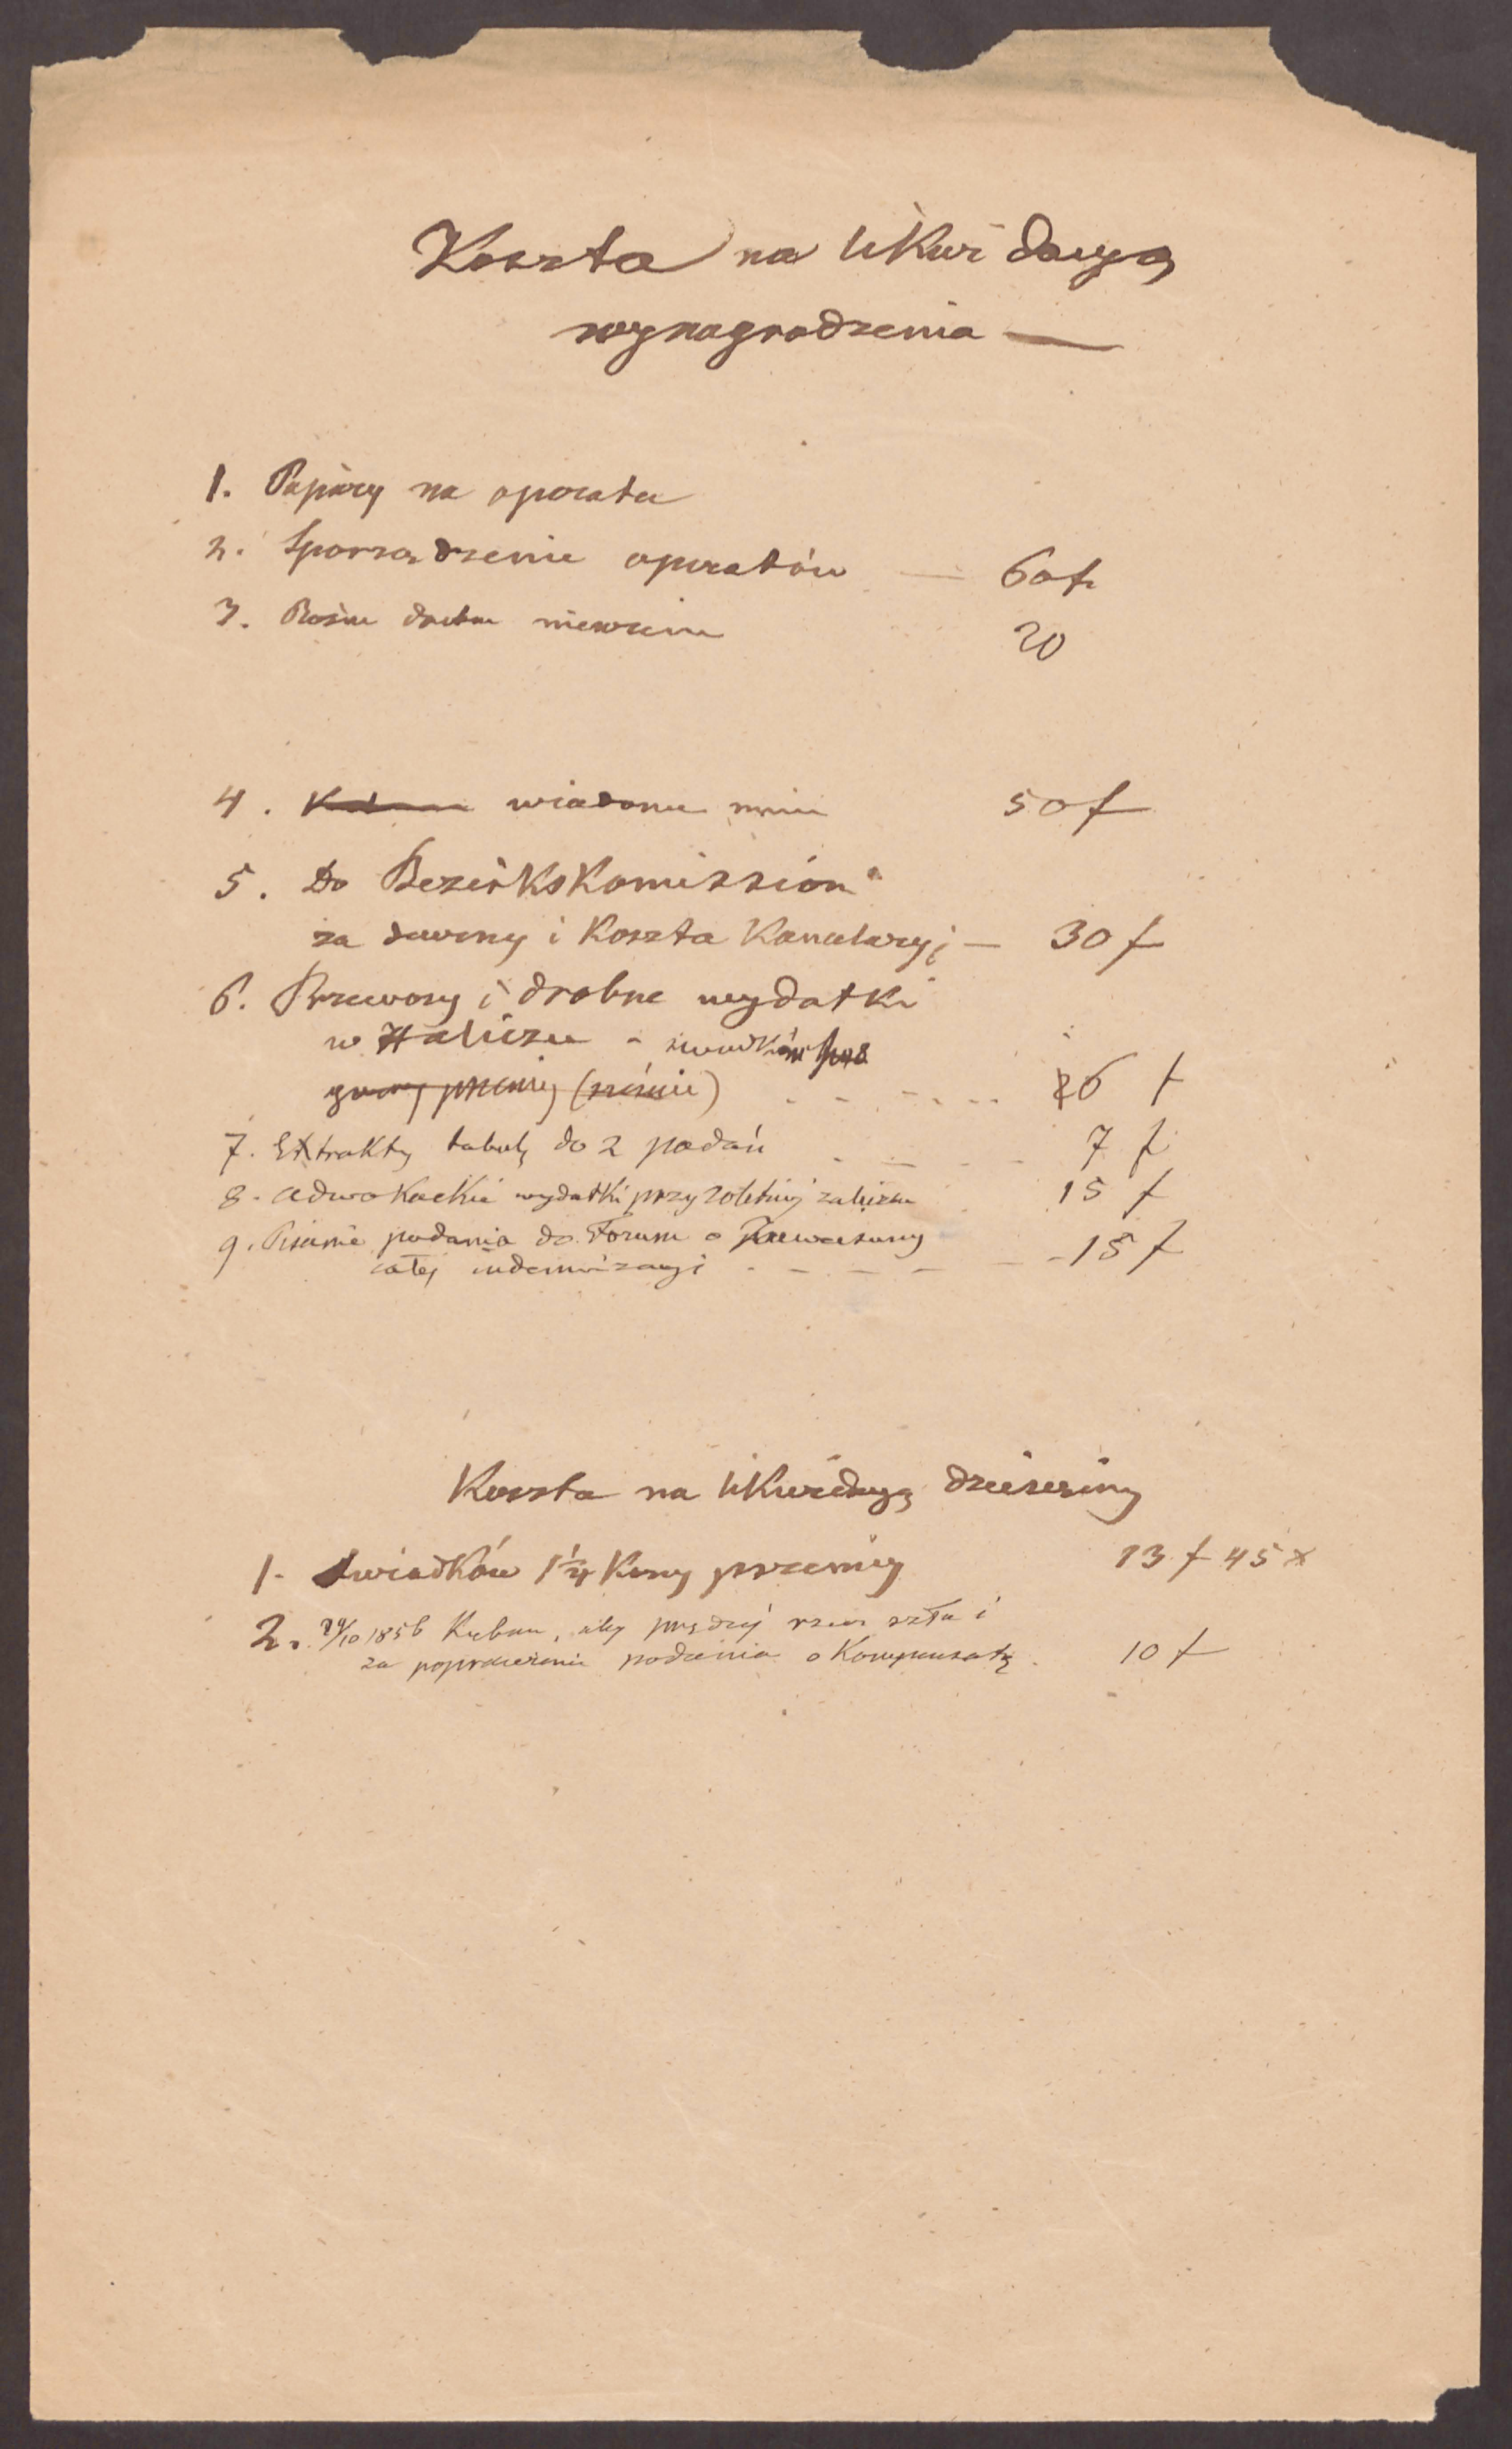 Koszta na likwidacyą
wynagrodzenia —
1. Papiery na operata
2. Sporządzenie operatów — 60 f
3. Różne drobne 20
4. wiadome mnie 50 f
5. Do Bezirkskomission
za daremny i Koszta Kancelaryj — 30 f
6. Przewozy i drobne wydatki
w Haliczu - świadków
26 f
7. Extrakty tabulę do 2 podań - - - 7 f
8. adwokackie wydatki przy 20letniej zaliczce 15 f
9. Pisanie podania do Forum o
całej indemnizacyi - - - - - 15 f
Koszta na likwidacyą dziesięciny
1. Świadków 1¼ Kory pszenicy 13 f 45 x
2. 1856 Kuban, aby prędzej rzecz szła i
za poprawienie podania o Kompensatę. 10 f